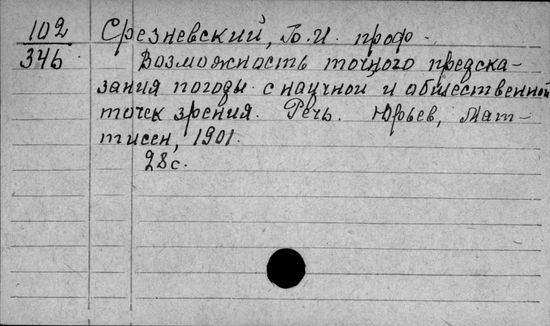 102 Срезневский, Б. И. проф.
346 Возможность точного предска-
зания погоды с научной и общественной
точек зрения. Речь. Юрьев, Мат-
тисен, 1901.
28 с.